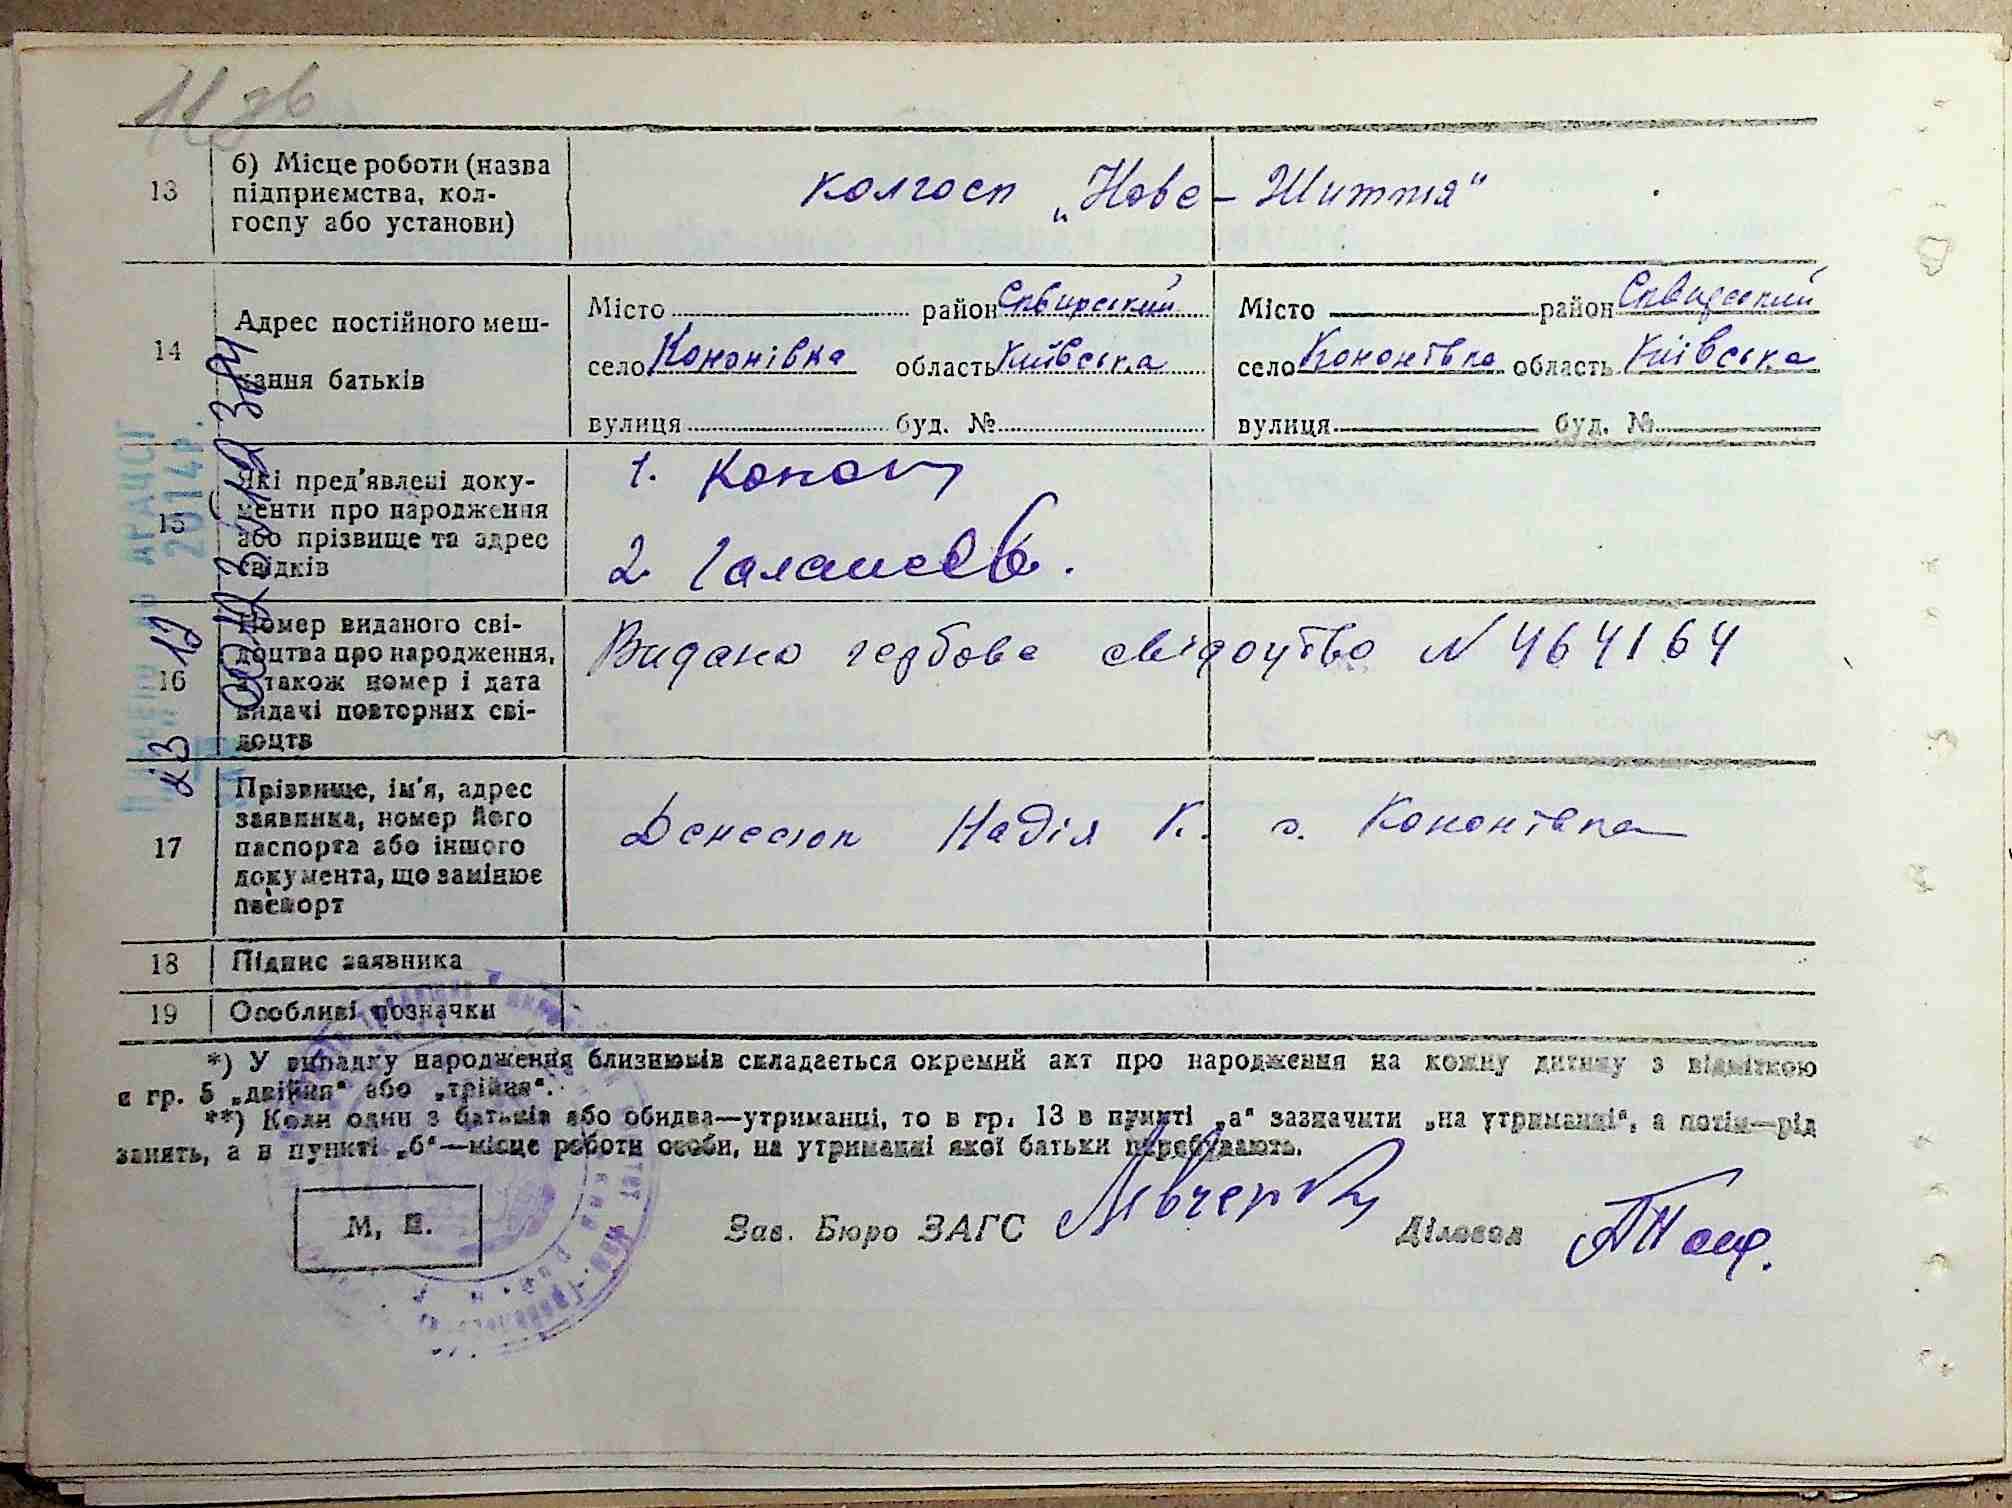 11 зв
13
б) Місце роботи (назва
підприємства, кол-
госпу або установи)
колгосп „Нове-Життя"
14
Адрес постійного меш-
кання батьків
Місто район Сквирський
село Кононівка область Київська
вулиця буд. №
Місто район Сквирський
село Кононівка область Київська
вулиця буд. №
15
Які пред'явлені доку-
менти про народження
або прізвище та адрес
свідків
1. Конон
2.
16
Номер виданого сві-
доцтва про народження,
а також номер і дата
видачі повторних сві-
доцтв
Видано гербове свідоцтво N 464164
17
Прізвище, ім'я, адрес
заявника, номер його
паспорта або іншого
документа, що замінює
паспорт
Денесюк Надія К. с. Кононівка
18
Підпис заявника
19
Особливі позначки
*) У випадку народження близнюків складається окремий акт про народження на кожну дитину з відміткою
в гр. 5 „двійня" або „трійня".
**) Коли один з батьків або обидва—утриманці, то в гр. 13 в пункті „а" зазначити „на утриманні", а потім—рід
занять, а в пункті „б"—місце роботи особи, на утриманні якої батьки перебувають.
М, П.
Зав. Бюро ЗАГС
Діловод
ДРАЦСГ
2014р.